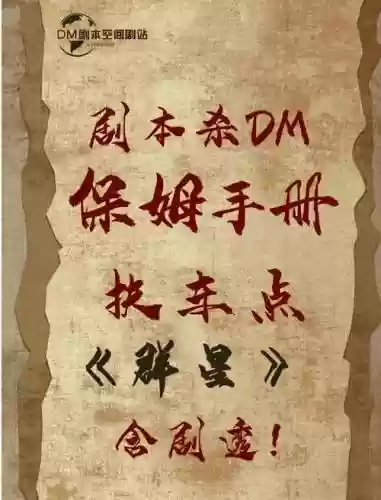 DM剧本空间剧站
剧本杀DM
保姆手册
扶车点
《群星》
含剧透！